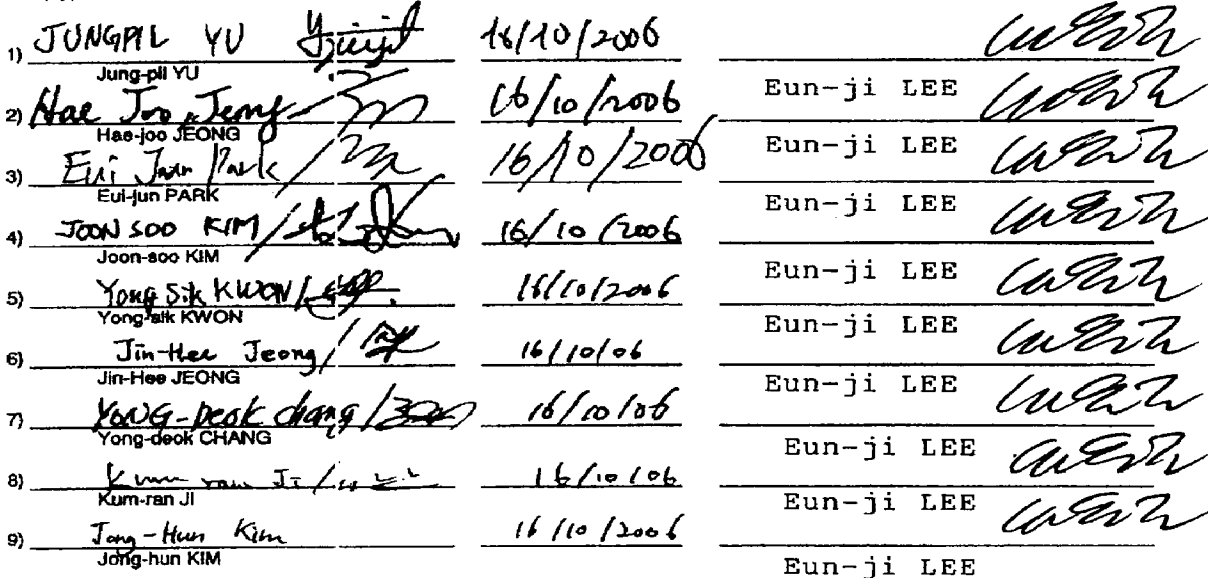 1) JUNGPIL YU 16/10/2006
Jung-pil YU Eun-ji LEE
2) Hae Joo Jeong 16/10/2006
Hae-joo JEONG Eun-ji LEE
3) Eui Joon Park 16/10/2006
Eui-jun PARK Eun-ji LEE
4) JOON SOO KIM 16/10/2006
Joon-soo KIM Eun-ji LEE
5) Yong Sik KWON 16/10/2006
Yong-sik KWON Eun-ji LEE
6) Jin-Hee Jeong 16/10/06
Jin-Hee JEONG Eun-ji LEE
7) YONG-Deok chang 16/10/06
Yong-deok CHANG Eun-ji LEE
8) Kum ran Ji 16/10/06
Kum-ran JI Eun-ji LEE
9) Jong-Hun Kim 16/10/2006
Jong-hun KIM Eun-ji LEE